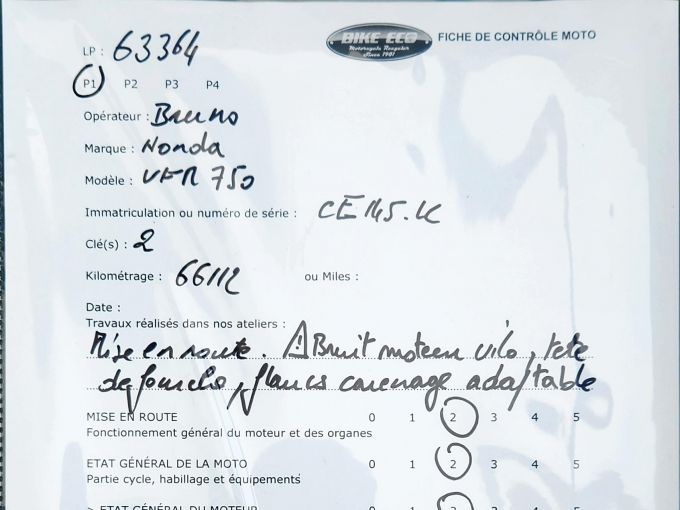 LP : 63364
BIKE ECO
Motorcycle Recycler
Since 1981
FICHE DE CONTRÔLE MOTO
P1 P2 P3 P4
Opérateur : Bruno
Marque : Honda
Modèle : VFR 750
Immatriculation ou numéro de série : CE 145.K
Clé(s) : 2
Kilométrage : 66112 ou Miles :
Date :
Travaux réalisés dans nos ateliers :
Mise en route. ⚠ Bruit moteur vilo, tete
de fourche, flancs carenage adaptable
MISE EN ROUTE 0 1 2 3 4 5
Fonctionnement général du moteur et des organes
ETAT GÉNÉRAL DE LA MOTO 0 1 2 3 4 5
Partie cycle, habillage et équipements
> ETAT GÉNÉRAL DU MOTEUR 0 1 2 3 4 5